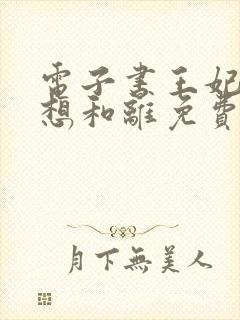 電子書王妃
想和離免費
月下無美人